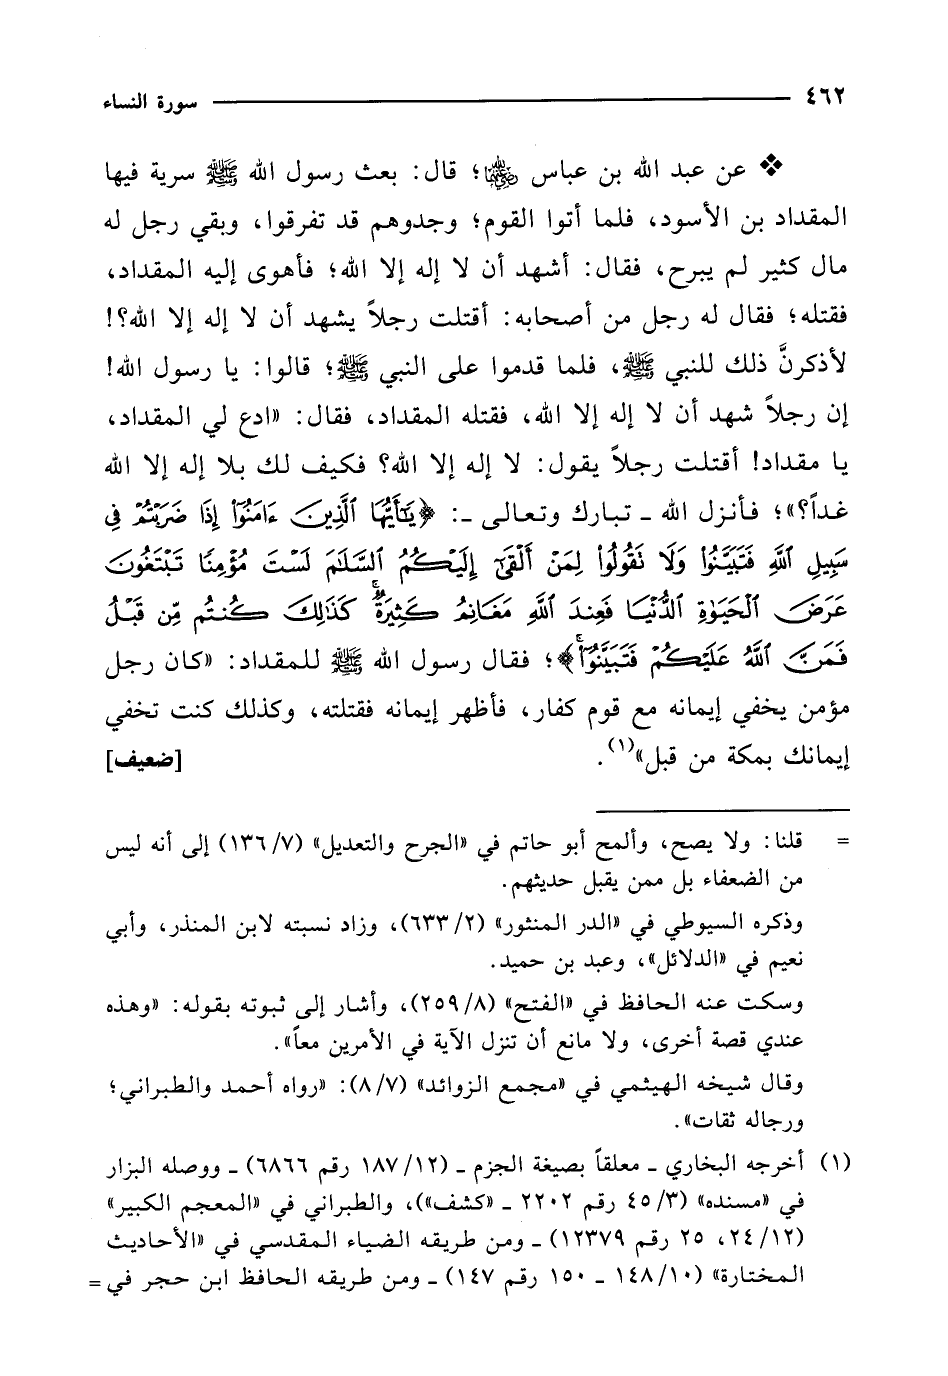 ٤٦٢ سورة النساء
❖ عن عبد الله بن عباس رضي الله عنهما؛ قال: بعث رسول الله ﷺ سرية فيها
المقداد بن الأسود، فلما أتوا القوم؛ وجدوهم قد تفرقوا، وبقي رجل له
مال كثير لم يبرح، فقال: أشهد أن لا إله إلا الله؛ فأهوى إليه المقداد،
فقتله؛ فقال له رجل من أصحابه: أقتلت رجلاً يشهد أن لا إله إلا الله؟!
لأذكرنَّ ذلك للنبي ﷺ، فلما قدموا على النبي ﷺ؛ قالوا: يا رسول الله!
إن رجلاً شهد أن لا إله إلا الله، فقتله المقداد، فقال: «ادع لي المقداد،
يا مقداد! أقتلت رجلاً يقول: لا إله إلا الله؟ فكيف لك بلا إله إلا الله
غداً؟»؛ فأنزل الله ـ تبارك وتعالى ـ: ﴿يَٰٓأَيُّهَا ٱلَّذِينَ ءَامَنُوٓا۟ إِذَا ضَرَبْتُمْ فِى
سَبِيلِ ٱللَّهِ فَتَبَيَّنُوا۟ وَلَا تَقُولُوا۟ لِمَنْ أَلْقَىٰٓ إِلَيْكُمُ ٱلسَّلَٰمَ لَسْتَ مُؤْمِنًا تَبْتَغُونَ
عَرَضَ ٱلْحَيَوٰةِ ٱلدُّنْيَا فَعِندَ ٱللَّهِ مَغَانِمُ كَثِيرَةٌ ۚ كَذَٰلِكَ كُنتُم مِّن قَبْلُ
فَمَنَّ ٱللَّهُ عَلَيْكُمْ فَتَبَيَّنُوٓا۟ ۚ﴾؛ فقال رسول الله ﷺ للمقداد: «كان رجل
مؤمن يخفي إيمانه مع قوم كفار، فأظهر إيمانه فقتلته، وكذلك كنت تخفي
إيمانك بمكة من قبل»(١). [ضعيف]
= قلنا: ولا يصح، وألمح أبو حاتم في «الجرح والتعديل» (٧/ ١٣٦) إلى أنه ليس
من الضعفاء بل ممن يقبل حديثهم.
وذكره السيوطي في «الدر المنثور» (٢/ ٦٣٣)، وزاد نسبته لابن المنذر، وأبي
نعيم في «الدلائل»، وعبد بن حميد.
وسكت عنه الحافظ في «الفتح» (٨/ ٢٥٩)، وأشار إلى ثبوته بقوله: «وهذه
عندي قصة أخرى، ولا مانع أن تنزل الآية في الأمرين معاً».
وقال شيخه الهيثمي في «مجمع الزوائد» (٧/ ٨): «رواه أحمد والطبراني؛
ورجاله ثقات».
(١) أخرجه البخاري ـ معلقاً بصيغة الجزم ـ (١٢/ ١٨٧ رقم ٦٨٦٦) ـ ووصله البزار
في «مسنده» (٣/ ٤٥ رقم ٢٢٠٢ ـ «كشف»)، والطبراني في «المعجم الكبير»
(١٢/ ٢٤، ٢٥ رقم ١٢٣٧٩) ـ ومن طريقه الضياء المقدسي في «الأحاديث
المختارة» (١٠/ ١٤٨ ـ ١٥٠ رقم ١٤٧) ـ ومن طريقه الحافظ ابن حجر في =